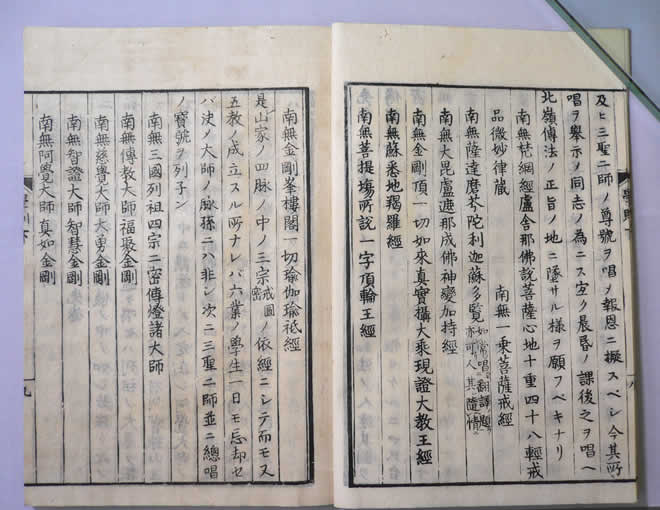 及ヒ三聖二師ノ尊號ヲ唱ヘ報恩ニ擬スベシ今其所
唱ヲ舉示ノ同志ノ為ニス空ク晨昏ノ課後之ヲ唱ヘ
北嶺傳法ノ正旨ノ地ニ墜サル様ヲ願フベキナリ
南無梵綱經盧舍那佛說菩薩心地十重四十八輕戒
品微妙律藏 南無一乘菩薩戒經
南無薩達磨芬陀利迦蘇多覽 如常唱翻譯題亦可人其隨情
南無大毘盧遮那成佛神變加持經
南無金剛頂一切如來真實攝大乘現證大教王經
南無蘇悉地羯羅經
南無菩提塲所說一字頂輪王經
南無金剛峯樓閣一切瑜伽瑜祇經
是山家ノ四脉ノ中ノ三宗戒圓密ノ依經ニシテ而モス
五教ノ成立スル所ナレバ六業ノ學生一日モ忘却セ
バ決メ大師ノ脉孫ニハ非シ次ニ三聖二師並ニ總唱
ノ寶號ヲ列子ン
南無三國列祖四宗二密傳燈諸大師
南無傳教大師福聚金剛
南無慈覺大師大勇金剛
南無智證大師智慧金剛
南無阿覺大師真如金剛
九